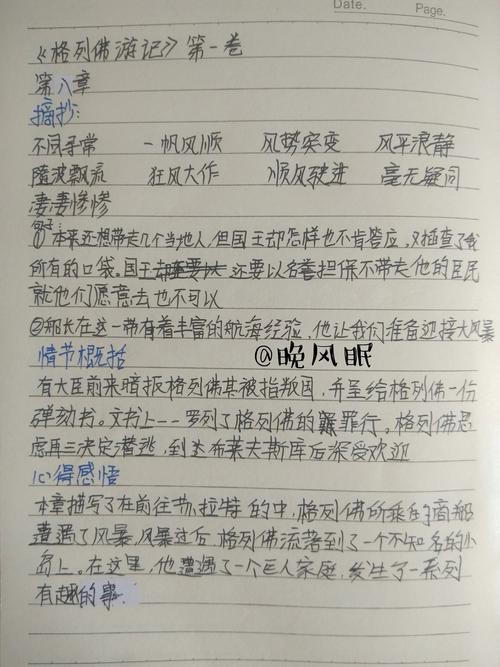 Date.   Page.
《格列佛游记》第一卷
第八章
摘抄:
不同寻常 一帆风顺 风势突变 风平浪静
随波飘流 狂风大作 顺风驶进 毫无疑问
凄凄惨惨
好句: ①本来还想带走几个当地人,但国王却怎样也不肯答应,又搜查了我
所有的口袋。国王 还要以名誉担保不带走他的臣民
就他们愿意去也不可以
②船长在这一带有着丰富的航海经验,他让我们准备迎接大风暴
@晚风眠
情节概括
有大臣前来暗报格列佛其被指叛国,并呈给格列佛一份
弹劾书。文书上一一罗列了格列佛的罪行。格列佛思
虑再三决定潜逃,到达布莱夫斯库后深受欢迎
心得感悟
本章描写了在前往苏拉特的中,格列佛所乘的商船
遭遇了风暴,风暴过后,格列佛流落到了一个不知名的小
岛上。在这里,他遭遇了一个巨人家庭,发生了一系列
有趣的事.